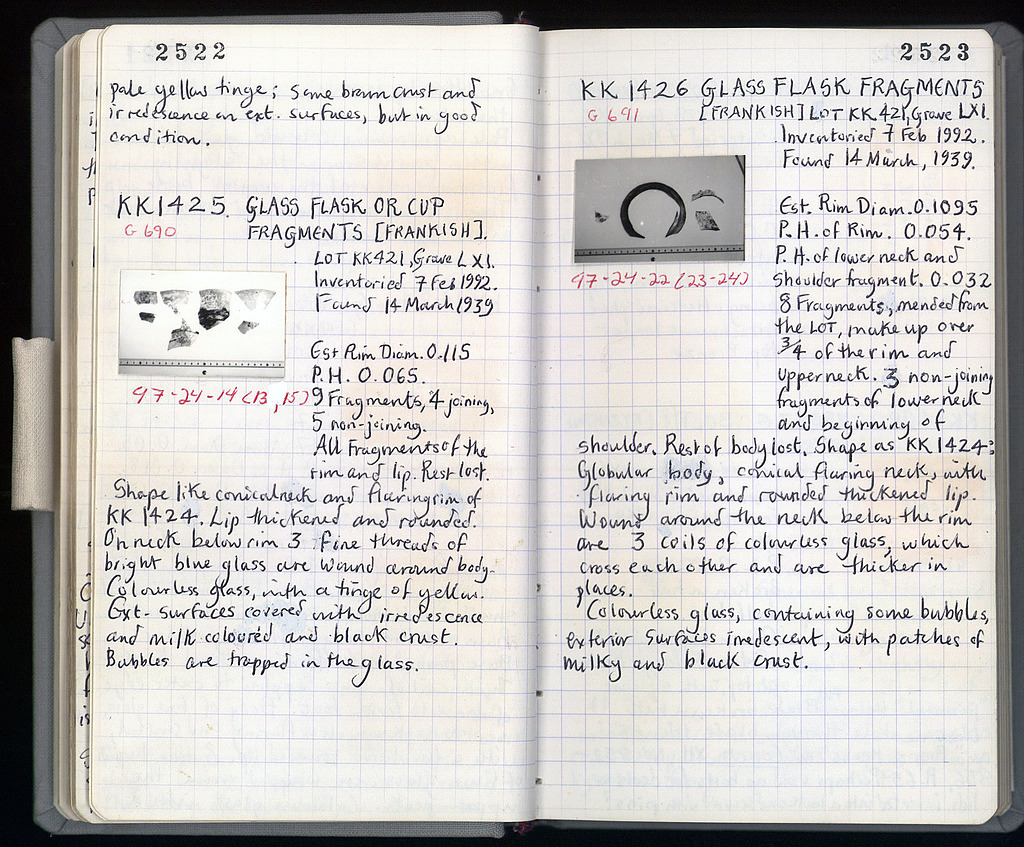 2522
pale yellow tinge; some brown crust and
irredescence on ext. surfaces, but in good
condition.
KK1425. GLASS FLASK OR CUP
G 690
FRAGMENTS [FRANKISH].
LOT KK421, Grave LXI.
Inventoried 7 Feb 1992.
Found 14 March 1939
Est Rim Diam. 0.115
P.H. 0.065.
97-24-14(13,15)
9 Fragments, 4 joining,
5 non-joining.
All Fragments of the
rim and lip. Rest lost.
Shape like conical neck and flaring rim of
KK 1424. Lip thickened and rounded.
On neck below rim 3 fine threads of
bright blue glass are wound around body.
Colourless glass, with a tinge of yellow.
Ext. surfaces covered with irredescence
and milk coloured and black crust.
Bubbles are trapped in the glass.
2523
KK 1426 GLASS FLASK FRAGMENTS
G 691
[FRANKISH] LOT KK 421, Grave LXI.
Inventoried 7 Feb 1992.
Found 14 March, 1939.
Est. Rim Diam. 0.1095
P.H. of Rim. 0.054.
P.H. of lower neck and
97-24-22(23-24)
shoulder fragment. 0.032
8 Fragments, mended from
the LOT, make up over
3/4 of the rim and
upper neck. 3 non-joining
fragments of lower neck
and beginning of
shoulder. Rest of body lost. Shape as KK 1424:
Globular body, conical flaring neck, with
flaring rim and rounded thickened lip.
Wound around the neck below the rim
are 3 coils of colourless glass, which
cross each other and are thicker in
places.
Colourless glass, containing some bubbles,
exterior surfaces irredescent, with patches of
milky and black crust.